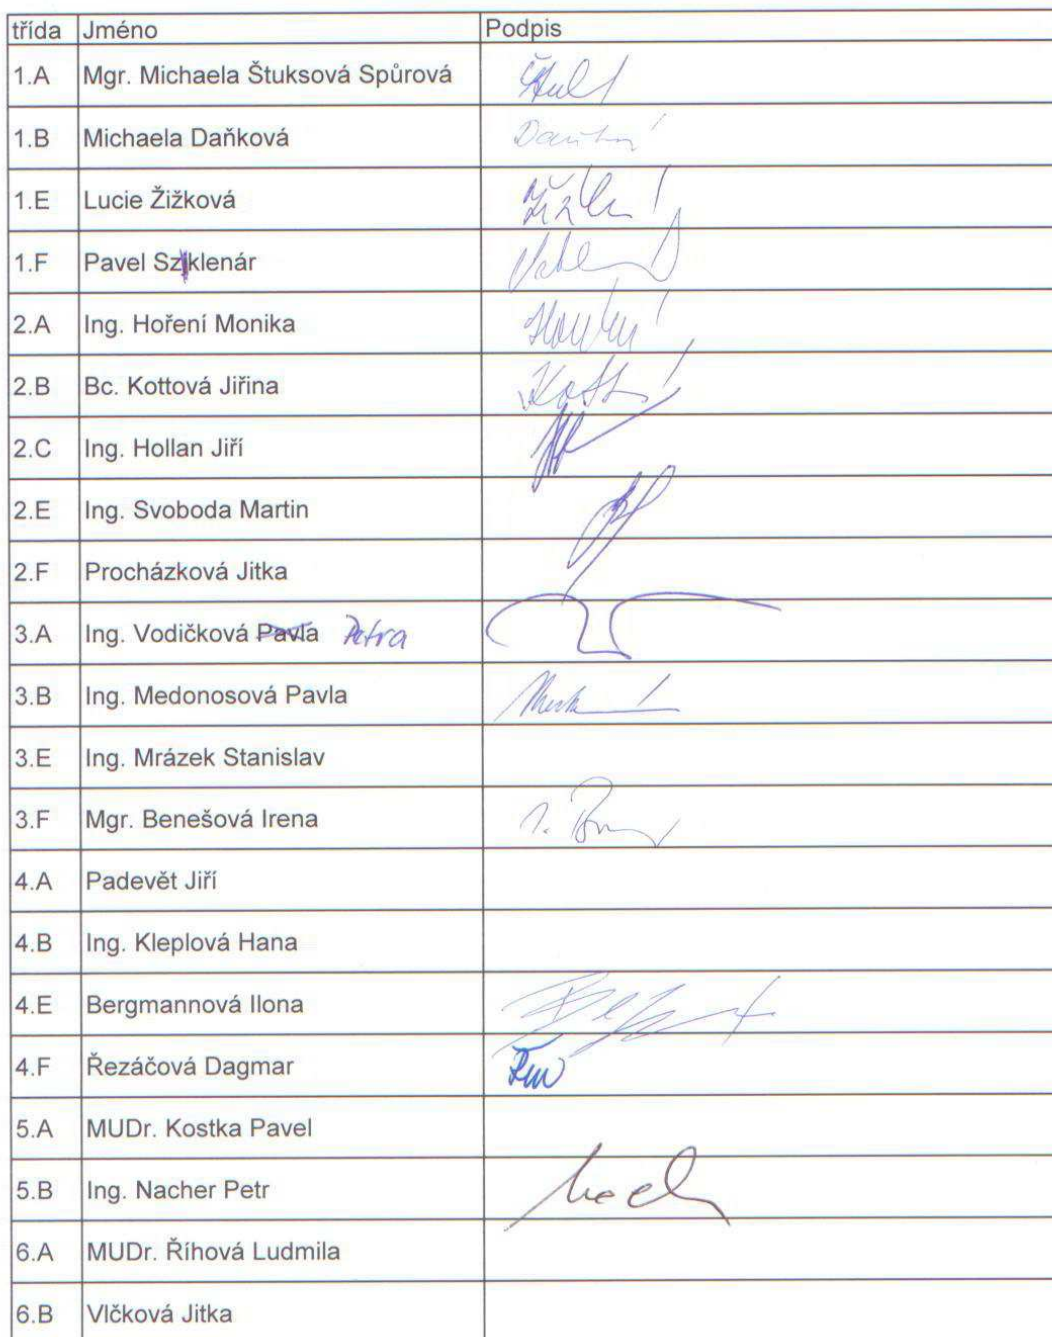 třída Jméno Podpis
1.A Mgr. Michaela Štuksová Spůrová
1.B Michaela Daňková
1.E Lucie Žižková
1.F Pavel Sziklenár
2.A Ing. Hoření Monika
2.B Bc. Kottová Jiřina
2.C Ing. Hollan Jiří
2.E Ing. Svoboda Martin
2.F Procházková Jitka
3.A Ing. Vodičková Pavla Petra
3.B Ing. Medonosová Pavla
3.E Ing. Mrázek Stanislav
3.F Mgr. Benešová Irena
4.A Padevět Jiří
4.B Ing. Kleplová Hana
4.E Bergmannová Ilona
4.F Řezáčová Dagmar
5.A MUDr. Kostka Pavel
5.B Ing. Nacher Petr
6.A MUDr. Říhová Ludmila
6.B Vlčková Jitka